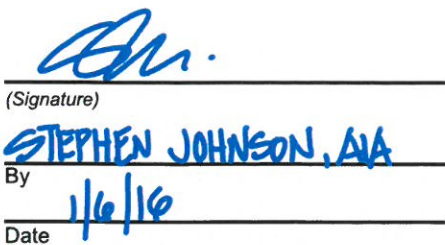 (Signature)
STEPHEN JOHNSON, AIA
By
1/6/16
Date